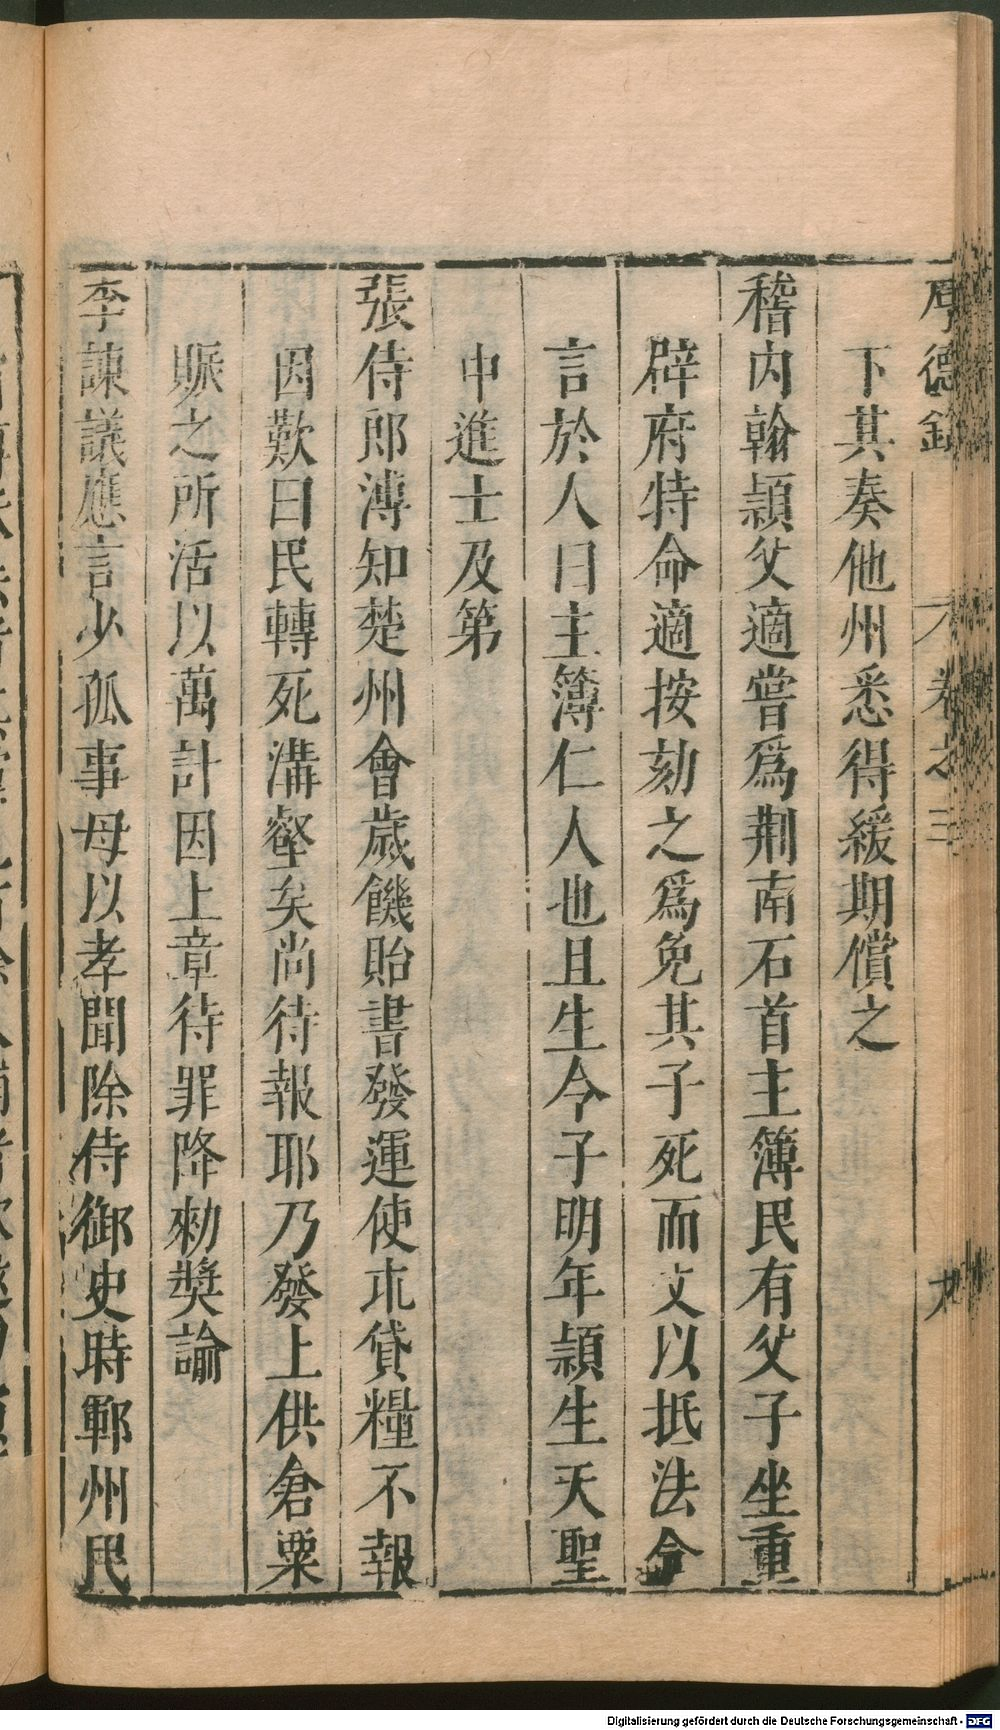 厚德錄 卷之三 九
下其奏他州悉得緩期償之
稽內翰頴父適嘗爲荆南石首主簿民有父子坐重
辟府特命適按劾之爲免其子死而文以抵法令
言於人曰主簿仁人也且生令子明年頴生天聖
中進士及第
張侍郎溥知楚州會歲饑貽書發運使朮貸糧不報
因歎曰民轉死溝壑矣尚待報耶乃發上供倉粟
賑之所活以萬計因上章待罪降勑奬諭
李諫議應言少孤事母以孝聞除侍御史時鄆州民
Digitalisierung gefördert durch die Deutsche Forschungsgemeinschaft - DFG